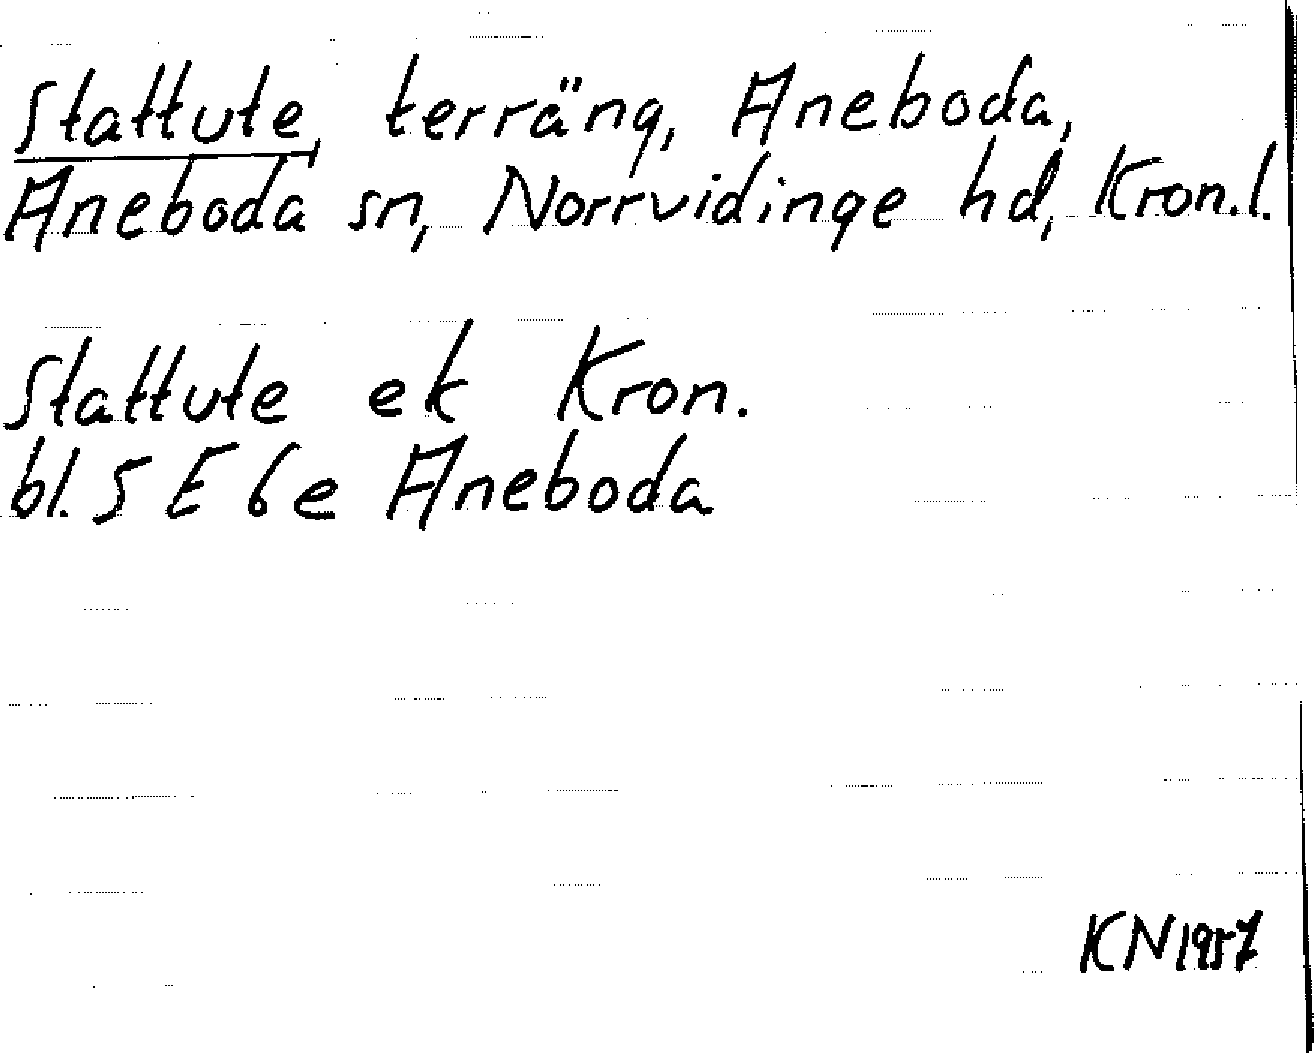 Stattute, terräng, Aneboda,
Aneboda sn, Norrvidinge hd, Kron.l.
Stattute ek Kron.
bl. 5 E 6 e Aneboda
KN 1957